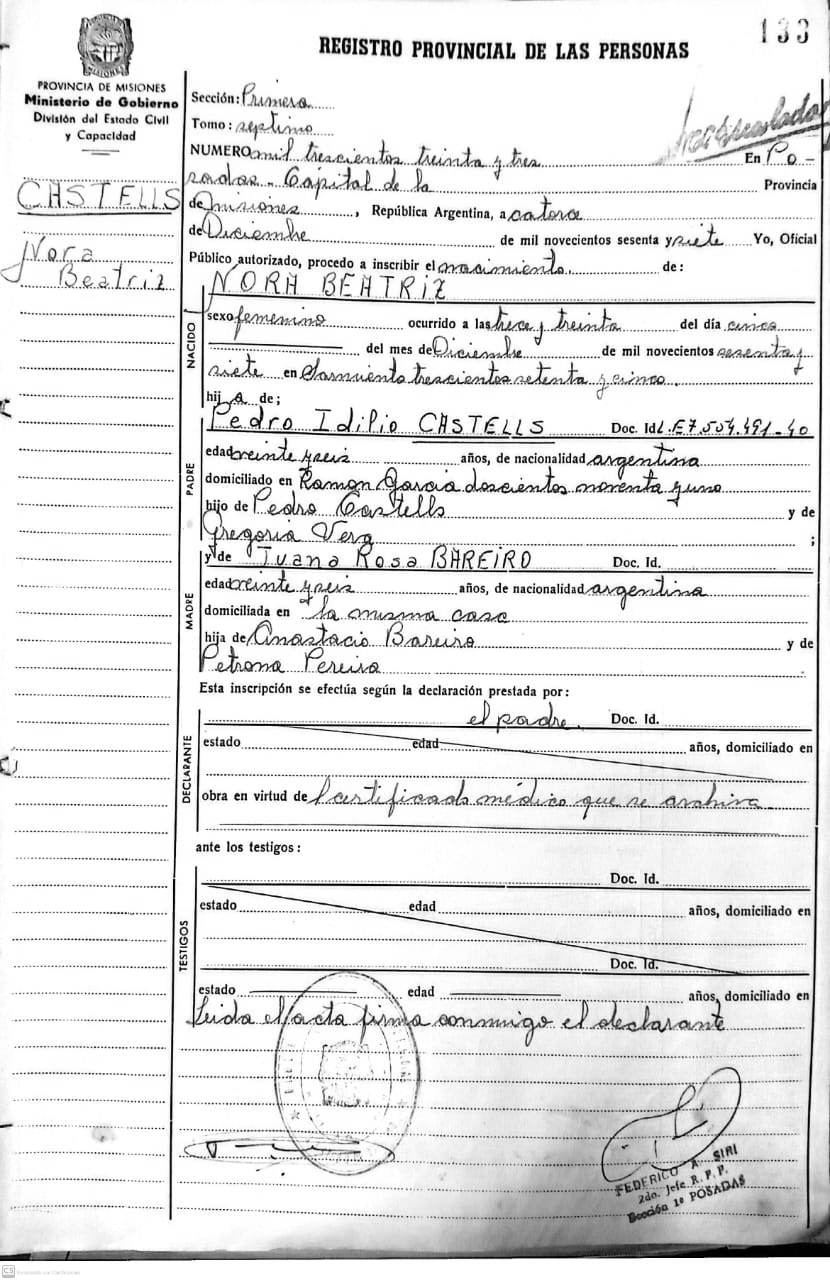 133
REGISTRO PROVINCIAL DE LAS PERSONAS
PROVINCIA DE MISIONES
Ministerio de Gobierno
División del Estado Civil
y Capacidad
CASTELLS
Nora
Beatriz
Sección: Primera
Tomo: septimo
NUMERO mil trescientos treinta y tres En Po-
sadas - Capital de la Provincia
de misiones, República Argentina, a catorce
de Diciembre de mil novecientos sesenta y siete Yo, Oficial
Público autorizado, procedo a inscribir el nacimiento de:
NACIDO
NORA BEATRIZ
sexo femenino ocurrido a las trece y treinta del día cinco
del mes de Diciembre de mil novecientos sesenta y
siete en Sarmiento trescientos setenta y cinco.
hija de;
PADRE
Pedro Idilio CASTELLS Doc. Id. L.E 7.554.491-40
edad veinte y seis años, de nacionalidad argentina
domiciliado en Ramon Garcia doscientos noventa y uno
hijo de Pedro Castells y de
Gregoria Vera ;
MADRE
y de Juana Rosa BAREIRO Doc. Id.
edad veinte y seis años, de nacionalidad argentina
domiciliada en la misma casa
hija de Anastacio Bareiro y de
Petrona Pereira
Esta inscripción se efectúa según la declaración prestada por:
DECLARANTE
el padre. Doc. Id.
estado edad años, domiciliado en
obra en virtud del certificado médico que se archiva
ante los testigos:
TESTIGOS
Doc. Id.
estado edad años, domiciliado en
Doc. Id.
estado edad años, domiciliado en
Leida el acta firma conmigo el declarante
FEDERICO A. SIRI
2do. Jefe R. P. P.
Sección 1ª POSADAS
CS